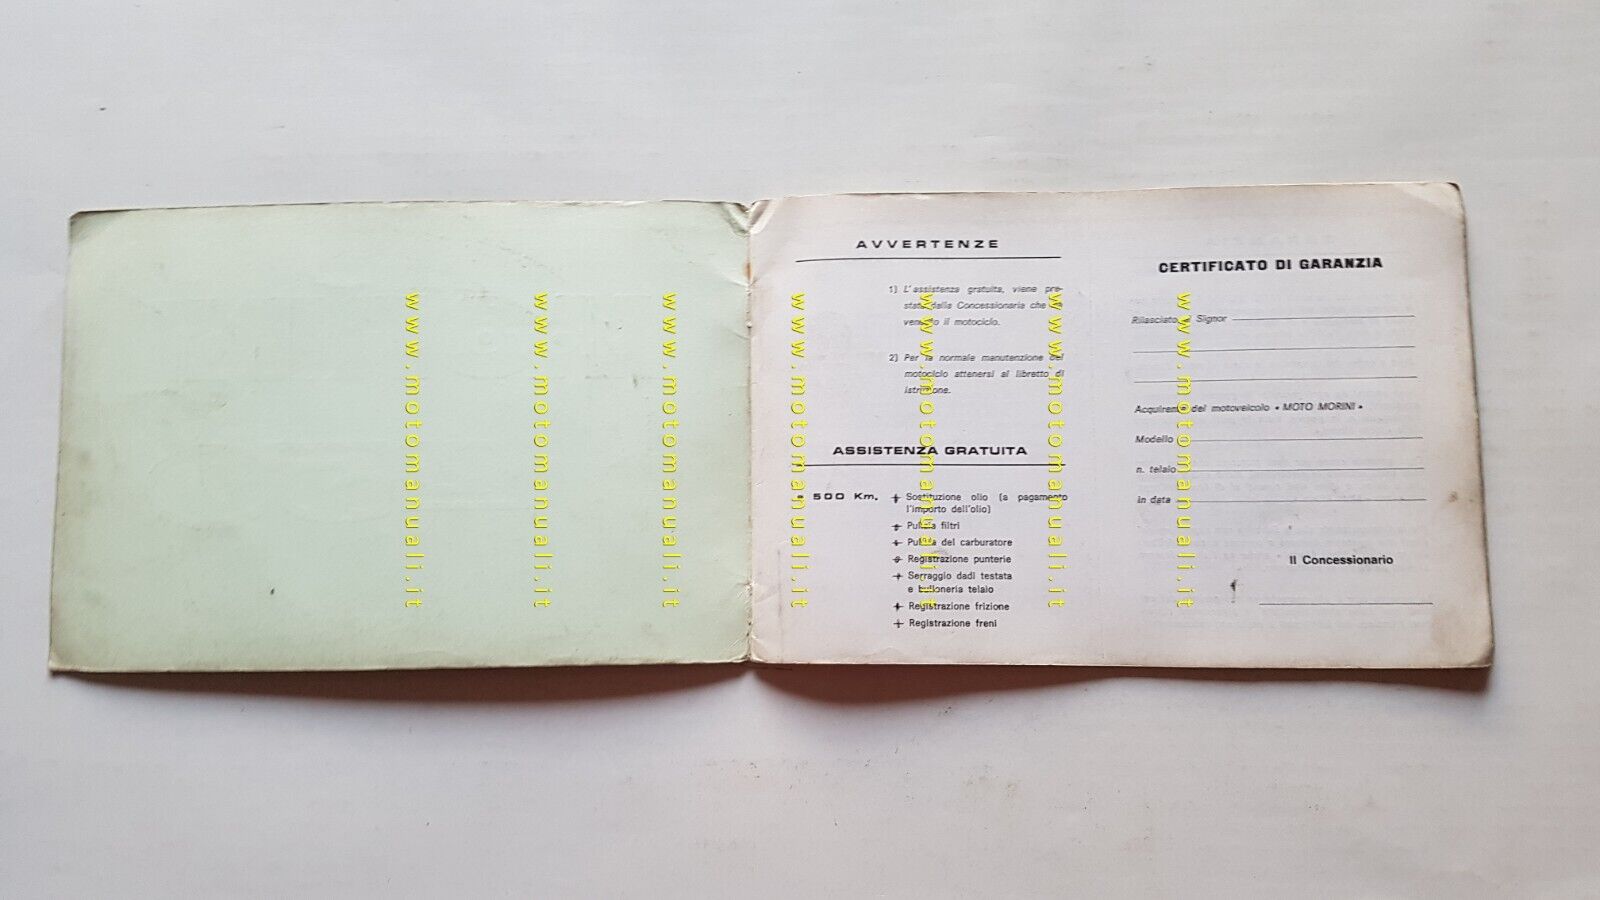 AVVERTENZE
1) L'assistenza gratuita, viene pre-
stata dalla Concessionaria che ha
venduto il motociclo.
2) Per la normale manutenzione del
motociclo attenersi al libretto di
istruzione.
ASSISTENZA GRATUITA
a 500 Km. + Sostituzione olio (a pagamento
l'importo dell'olio)
+ Pulizia filtri
+ Pulizia del carburatore
+ Registrazione punterie
+ Serraggio dadi testata
e bulloneria telaio
+ Registrazione frizione
+ Registrazione freni
CERTIFICATO DI GARANZIA
Rilasciato al Signor
Acquirente del motoveicolo « MOTO MORINI »
Modello
n. telaio
in data
Il Concessionario
www.motomanuali.it
www.motomanuali.it
www.motomanuali.it
www.motomanuali.it
www.motomanuali.it
www.motomanuali.it
www.motomanuali.it